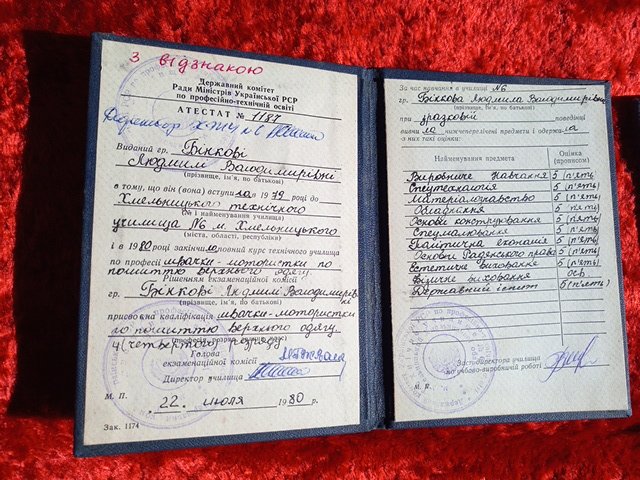 З відзнакою
Державний комітет
Ради Міністрів Української РСР
по професійно-технічній освіті
АТЕСТАТ № 1187
Виданий гр. Бінкові
Людмилі Володимирівні
(прізвище, ім'я, по батькові)
в тому, що він (вона) вступила в 1979 році до
Хмельницького технічного
(№ і найменування училища)
училища №6 м. Хмельницького
(міста, області, республіки)
і в 1980 році закінчила повний курс технічного училища
по професії швачки-мотористки по
пошиттю верхнього одягу.
Рішенням екзаменаційної комісії
гр. Бінкові Людмилі Володимирівні
(прізвище, ім'я, по батькові)
присвоєна кваліфікація швачки-мотористки
по пошиттю верхнього одягу.
4 (четвертого) розряду
Голова
екзаменаційної комісії
Директор училища
М. П. 22 июля 1980 р.
Зак. 1174
За час навчання в училищі №6
гр. Бінкова Людмила Володимирівна
(прізвище, ім'я, по батькові)
при зразковій поведінці
вивчила нижчеперелічені предмети і одержала
з них такі оцінки:
Найменування предмета Оцінка (прописом)
Виробниче навчання 5 (п'ять)
Спецтехнологія 5 (п'ять)
Матеріалознавство 5 (п'ять)
Обладнання 5 (п'ять)
Основи конструювання 5 (п'ять)
Спецмалювання 5 (п'ять)
Політична економія 5 (п'ять)
Основи Радянського права 5 (п'ять)
Естетичне виховання 5 (п'ять)
Фізичне виховання осв
Державний іспит 5 (п'ять)
Заст. директора училища
по учбово-виробничій роботі